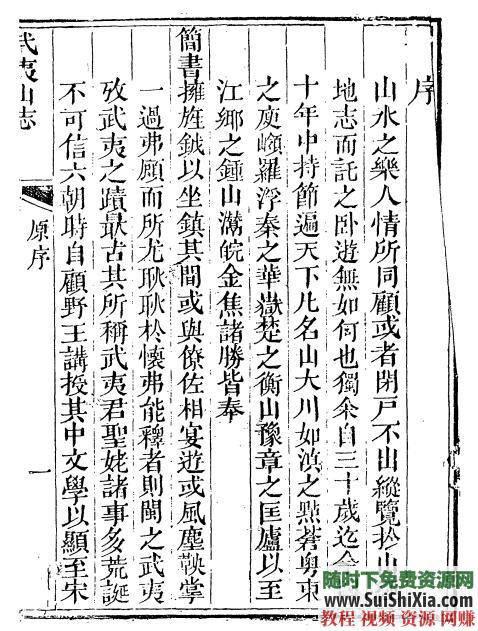 序
山水之樂人情所同顧或者閉戶不出縱覽於山
地志而託之卧遊無如何也獨余自三十歲迄今
十年中持節遍天下凡名山大川如滇之點蒼粵東
之庾嶺羅浮秦之華嶽楚之衡山豫章之匡廬以至
江鄉之鍾山灊皖金焦諸勝皆奉
簡書擁旌鉞以坐鎮其間或與僚佐相宴遊或風塵鞅掌
一過弗顧而所尤耿耿於懷弗能釋者則閩之武夷
攷武夷之蹟最古其所稱武夷君聖姥諸事多荒誕
不可信六朝時自顧野王講授其中文學以顯至宋
武夷山志
原序
一
随时下免费资源网
www.SuiShiXia.com
教程 视频 资源 网赚